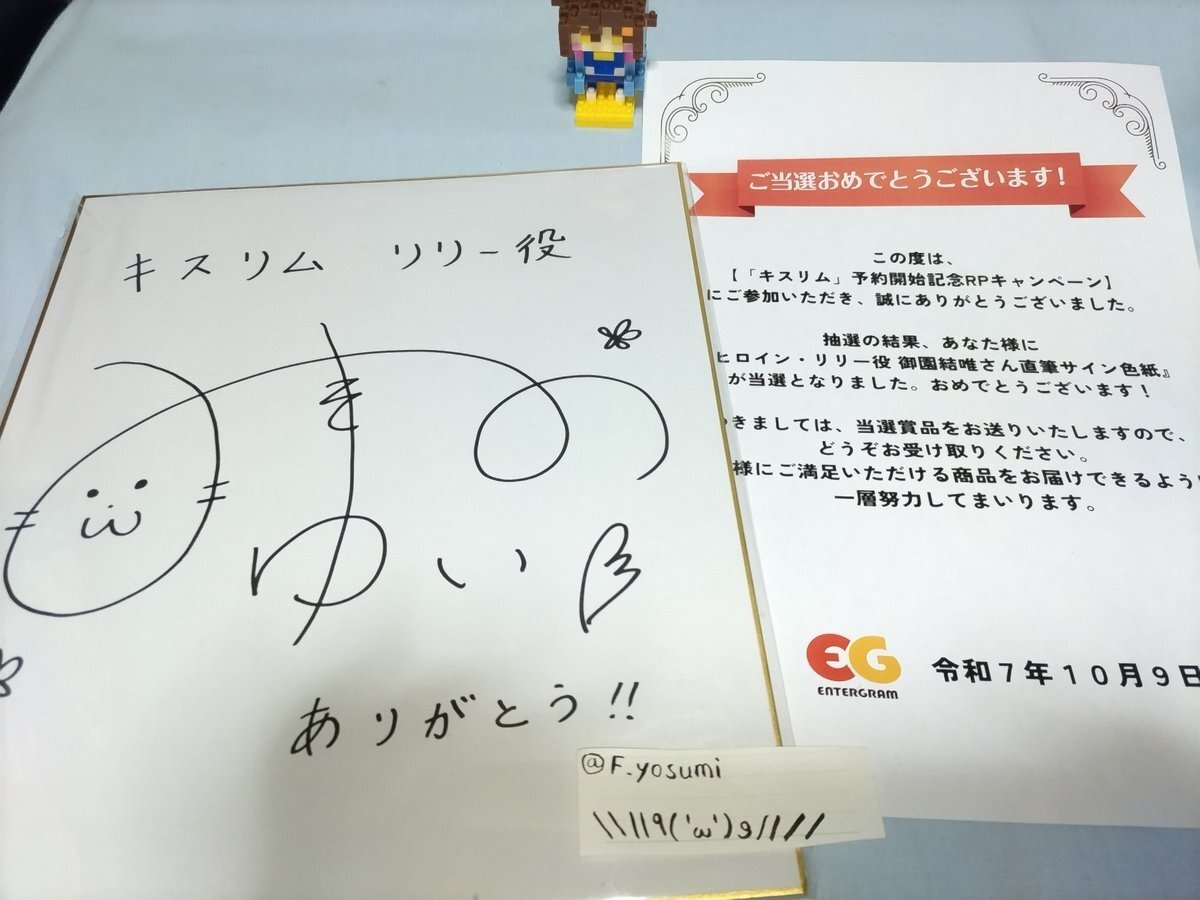 キスリム リリー役
みその
ゆい
ありがとう!!
@F.yosumi
\\\\||q('ω')g//||//
ご当選おめでとうございます！
この度は、
【「キスリム」予約開始記念RPキャンペーン】
にご参加いただき、誠にありがとうございました。
抽選の結果、あなた様に
ヒロイン・リリー役 御園結唯さん直筆サイン色紙』
が当選となりました。おめでとうございます！
きましては、当選賞品をお送りいたしますので、
どうぞお受け取りください。
様にご満足いただける商品をお届けできるよう
一層努力してまいります。
EG
ENTERGRAM
令和７年１０月９日